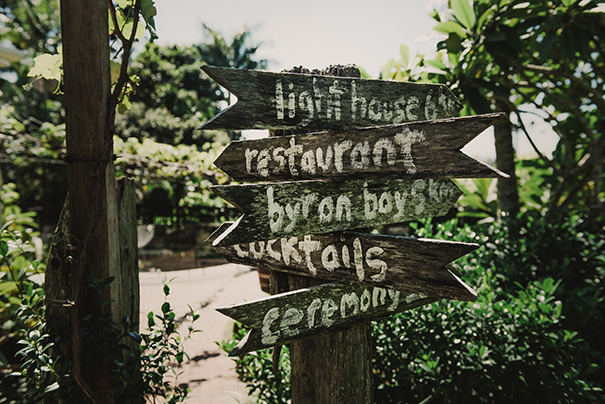 light house
restaurant
byron boys
cocktails
ceremony